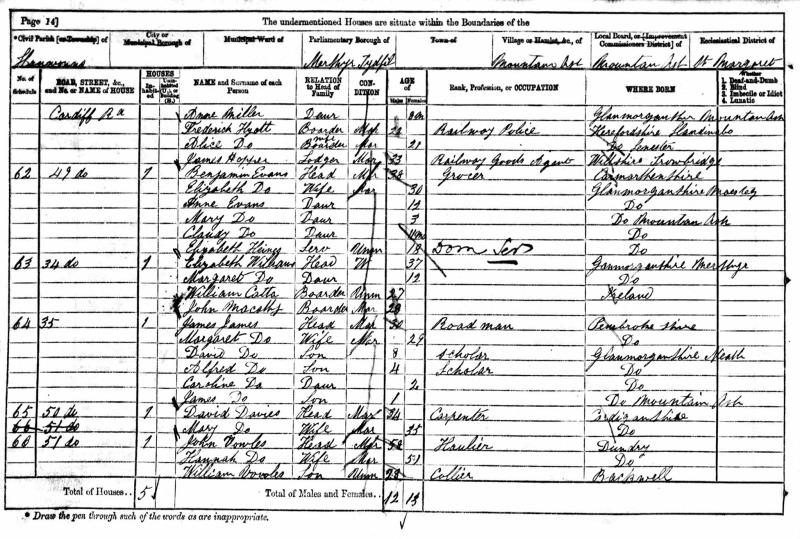 Page 14] The undermentioned Houses are situate within the Boundaries of the
*Civil Parish [or Township] of City or Municipal Borough of Municipal Ward of Parliamentary Borough of Town of Village or Hamlet, &c., of Local Board, or [Improvement Commissioners District] of Ecclesiastical District of
Merthyr Tydfil Mountain Ash Mountain Ash St Margaret
No. of Schedule ROAD, STREET, &c., and No. or NAME of HOUSE HOUSES Inhabited Uninhabited (U.), or Building (B.) NAME and Surname of each Person RELATION to Head of Family CONDITION AGE of Males Females Rank, Profession, or OCCUPATION WHERE BORN Whether 1. Deaf-and-Dumb 2. Blind 3. Imbecile or Idiot 4. Lunatic
Cardiff Rd Anne Miller Daur Glanmorganshire Mountain Ash
Frederick Hyatt Boarder Mar Railway Police Herefordshire
Alice Do Boarder Mar 21 Do
James Hopper Lodger Mar 33 Railway Goods Agent Wiltshire Trowbridge
62 49 do 1 Benjamin Evans Head Mar 38 Grocer Carmarthenshire
Elizabeth Do Wife Mar 30 Glanmorganshire Maesteg
Anne Evans Daur 12 Do
Mary Do Daur 3 Do Mountain Ash
Claudy Do Daur Do
Elizabeth Serv Unm 18 Dom Serv Do
63 34 do 1 Elizabeth Williams Head W 37 Ganmorganshire Merthyr
Margaret Do Daur 12 Do
William Boarder Unm 27 Ireland
John Boarder Mar 28
64 35 1 James James Head Mar 30 Road man Pembroke shire
Margaret Do Wife Mar 29 Do
David Do Son 8 Scholar Glanmorganshire Neath
Alfred Do Son 4 Scholar Do
Caroline Do Daur 2 Do
James Do Son 1 Do Mountain Ash
65 50 do 1 David Davies Head Mar 34 Carpenter Cardiganshire
66 51 do Mary Do Wife Mar 35 Do
66 51 do 1 John Vowles Head Mar 58 Haulier Dundry
Hannah Do Wife Mar 51 Do
William Vowles Son Unm 28 Collier Backwell
Total of Houses.. 5 Total of Males and Females.. 12 13
* Draw the pen through such of the words as are inappropriate.